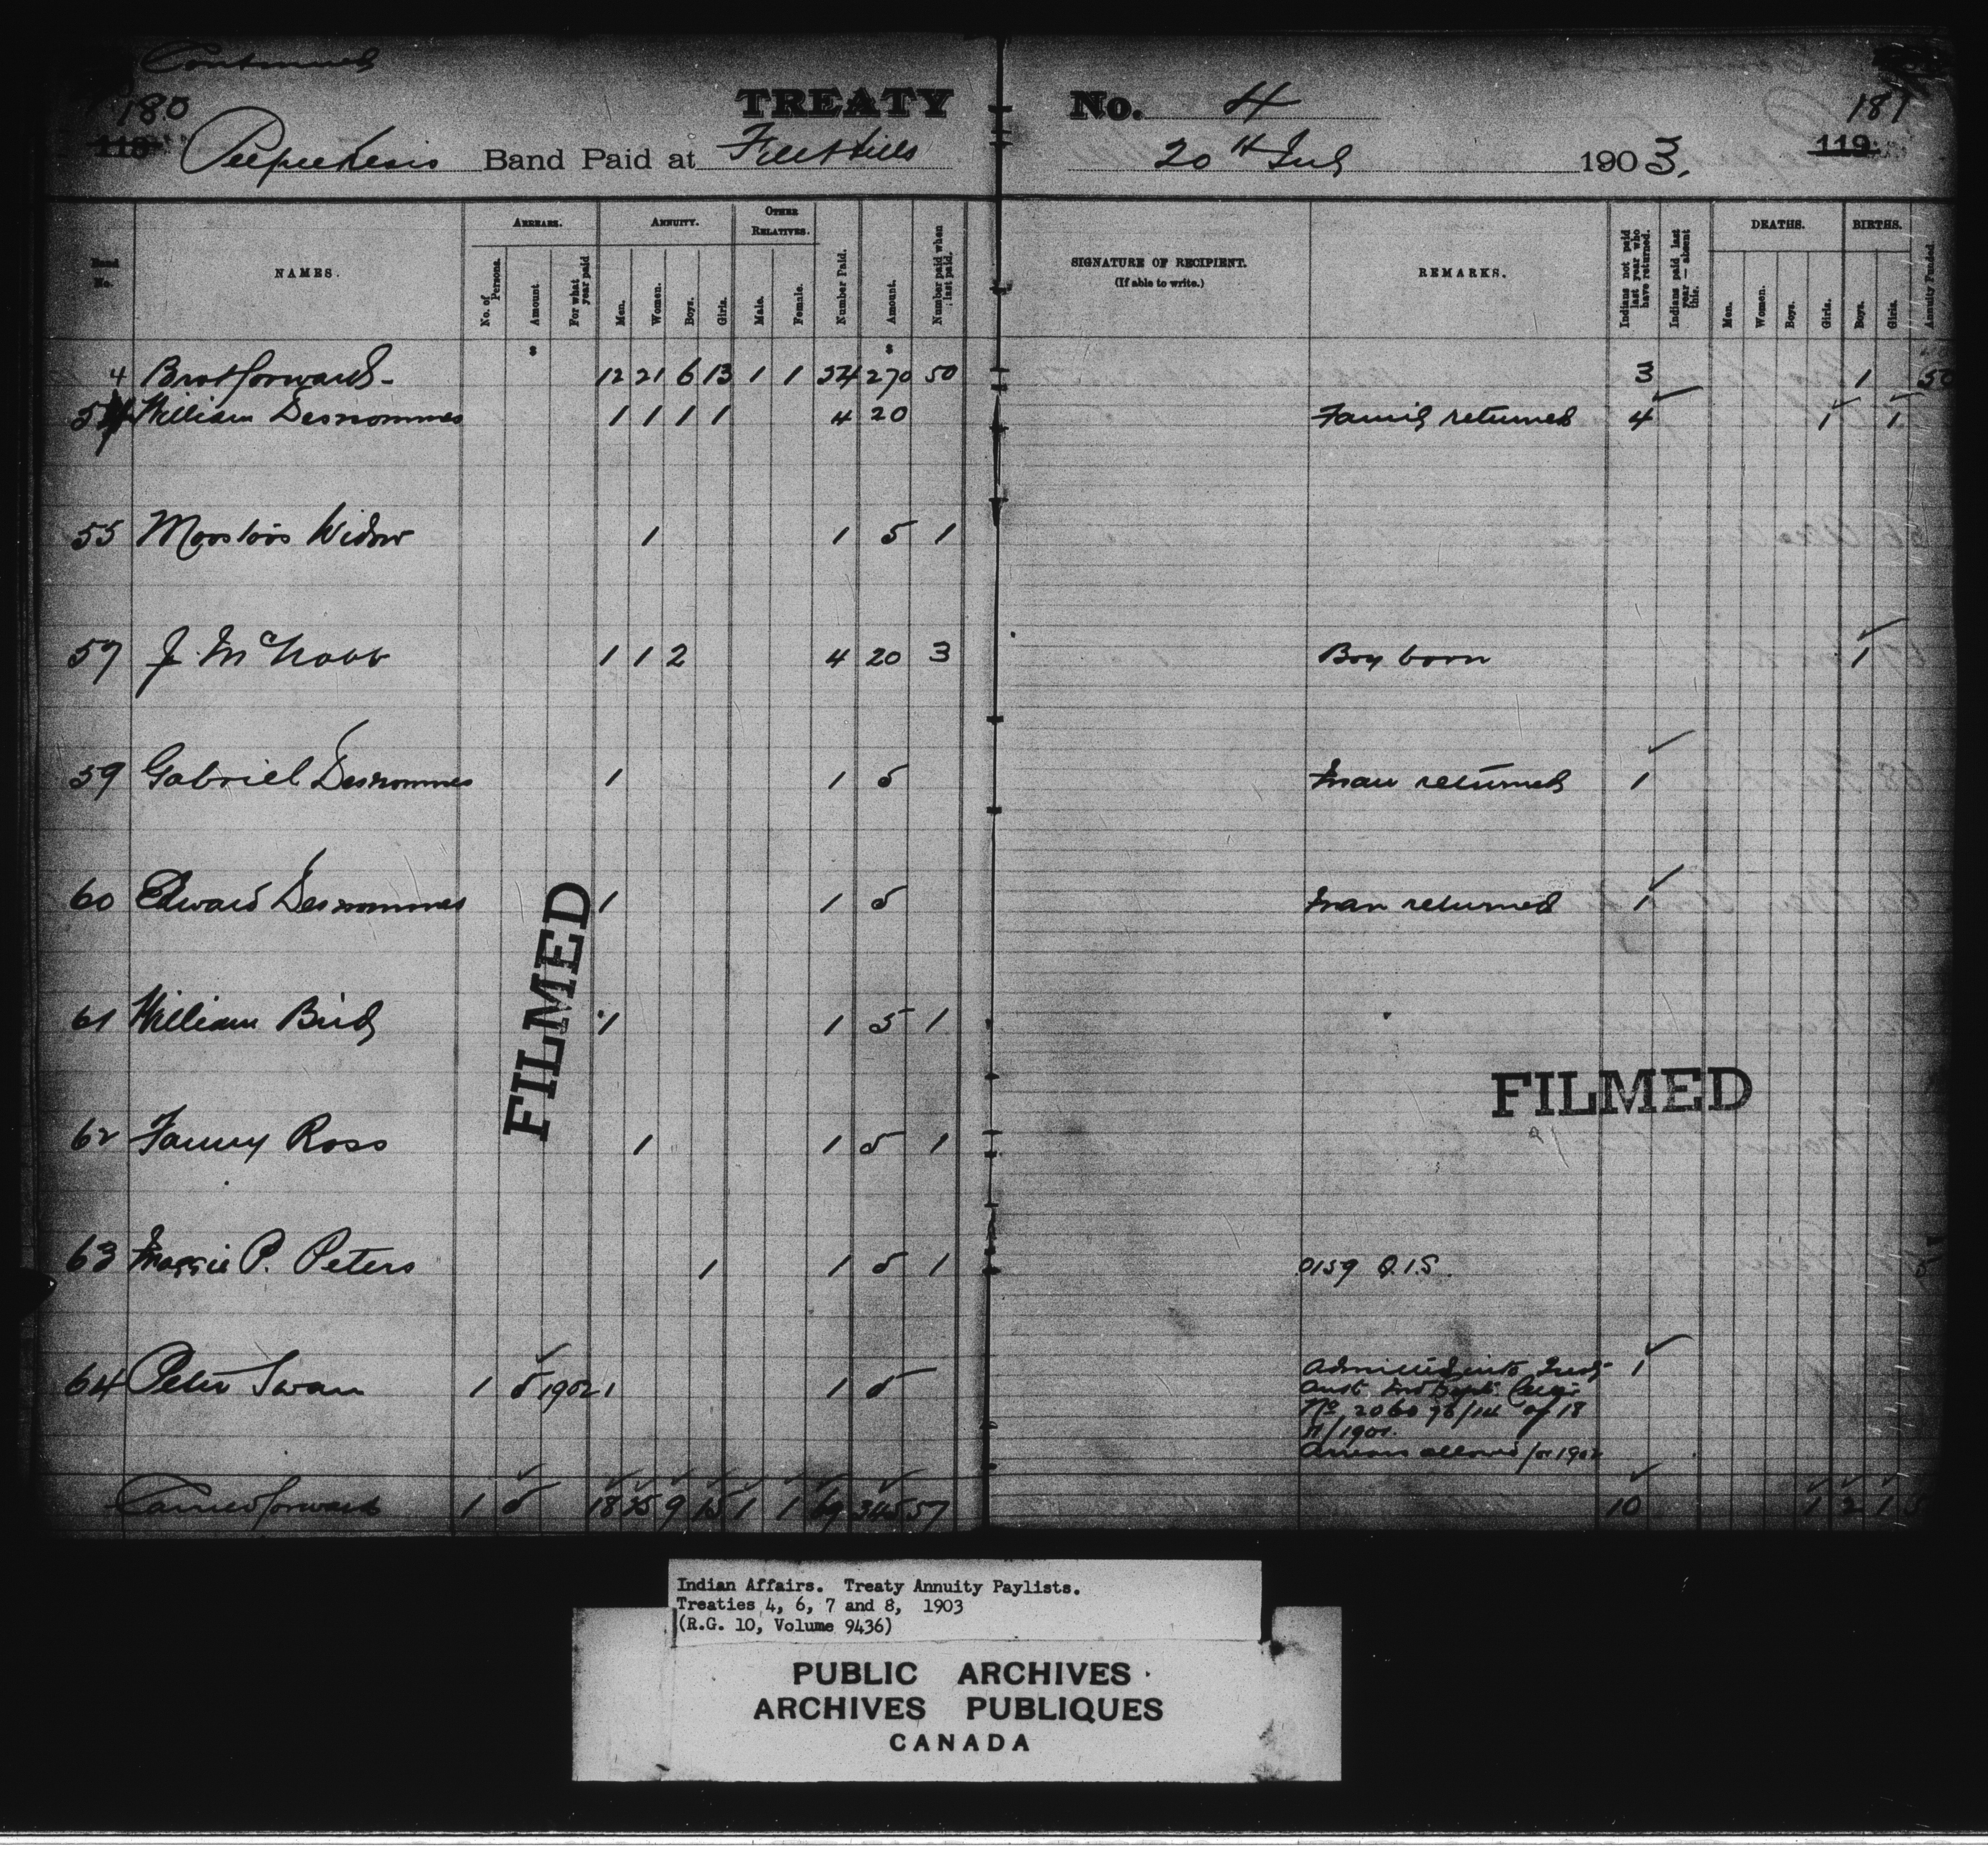 Continued
180 TREATY No. 4 181
118 Peepeekesis Band Paid at File Hills 20th July 1903. 119
Band No. NAMES. ARREARS. ANNUITY. OTHER RELATIVES. SIGNATURE OF RECIPIENT. (If able to write.) REMARKS. DEATHS. BIRTHS.
No. of Persons. Amount For what year paid Men. Women. Boys. Girls. Male. Female. Number Paid. Amount. Number paid when last paid. Indians not paid last year who have returned. Indians paid last year — absent this. Men. Women. Boys. Girls. Boys. Girls. Annuity Funded.
$ $
4 Brot forward - 12 21 6 13 1 1 54 270 50 3 1 50
54 William Desnommes 1 1 1 1 4 20 Family returned 4 1 1
55 Moostoos Widow 1 1 5 1
57 J. McNabb 1 1 2 4 20 3 Boy born 1
59 Gabriel Desnommes 1 1 5 Man returned 1
60 Edward Desnommes 1 1 5 Man returned 1
61 William Bird 1 1 5 1
62 Fanny Ross 1 1 5 1
63 Maggie P. Peters 1 1 5 1 0159 Q.I.S. 5
64 Peter Swan 1 5 1902 1 1 5 Admitted into Treaty 1
No
/1901.
Arrears allowed for 1902
Carried forward 1 5 18 25 9 15 1 1 69 345 57 10 1 2 1
FILMED
FILMED
Indian Affairs. Treaty Annuity Paylists.
Treaties 4, 6, 7 and 8, 1903
(R.G. 10, Volume 9436)
PUBLIC ARCHIVES
ARCHIVES PUBLIQUES
CANADA